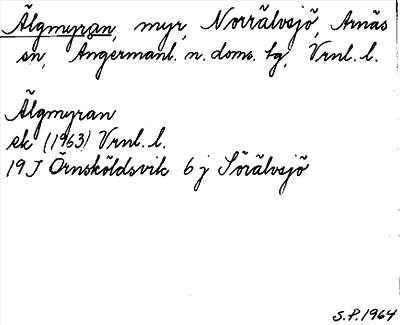 Älgmyran, myr, Norrälvsjö, Arnäs
sn, Ångermanl. n. doms. tg, Vrnl. l.
Älgmyran
ek (1963) Vrnl. l.
19J Örnsköldsvik 6j Sörälvsjö
S.P. 1964